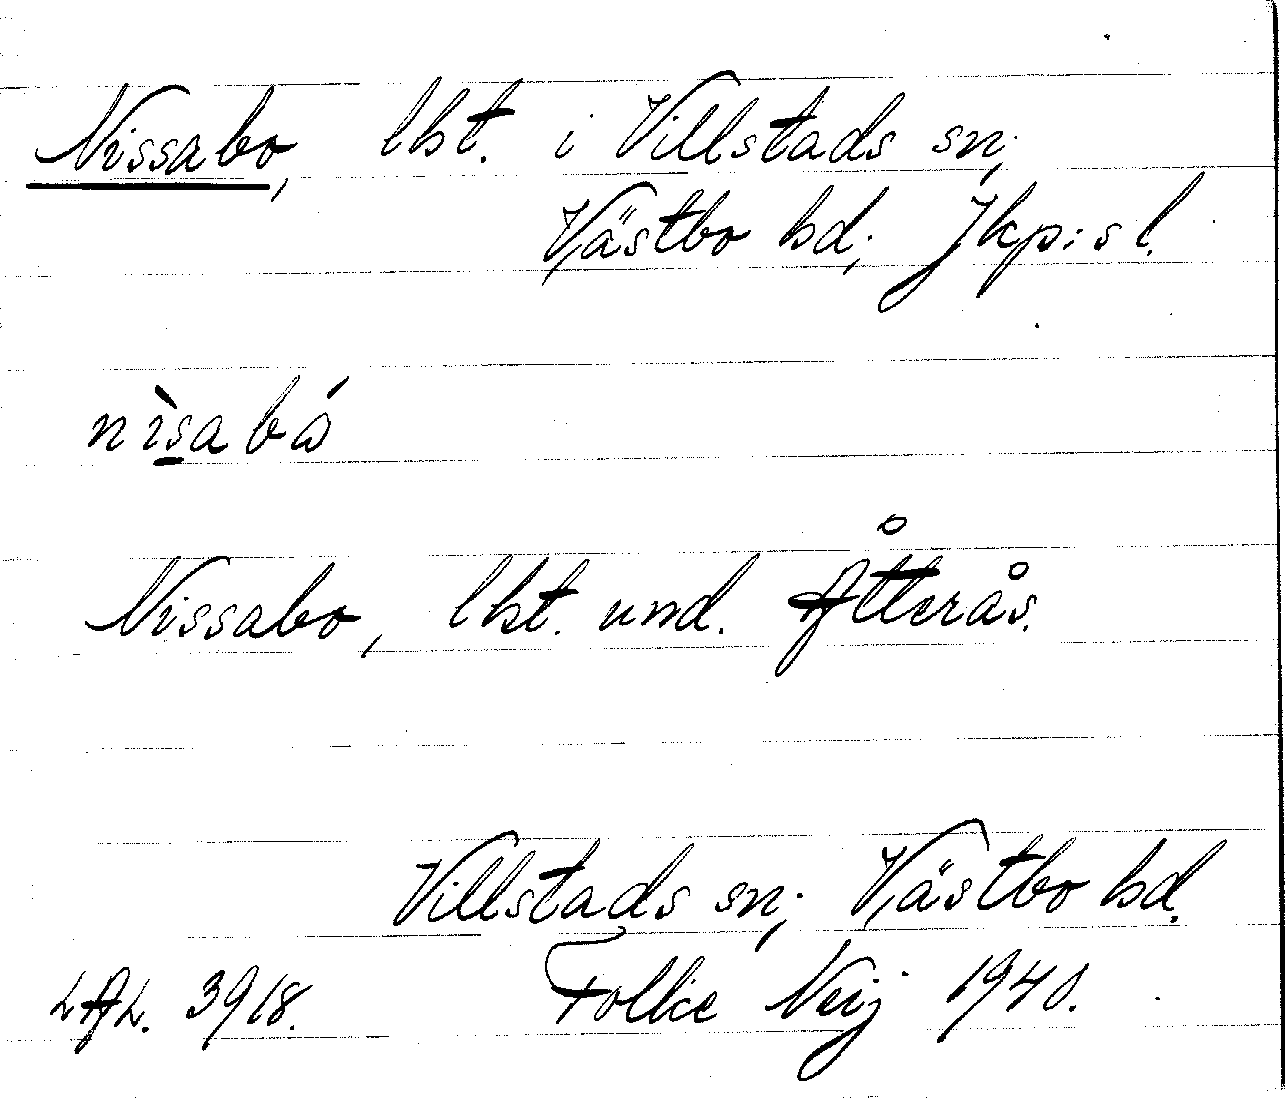 Nissabo, lht. i Villstads sn;
Västbo hd; Jkp:s l.
nìsabǻ
Nissabo, lht. und. Åtterås.
Villstads sn; Västbo hd.
LAL. 3918. Folke Neij 1940.